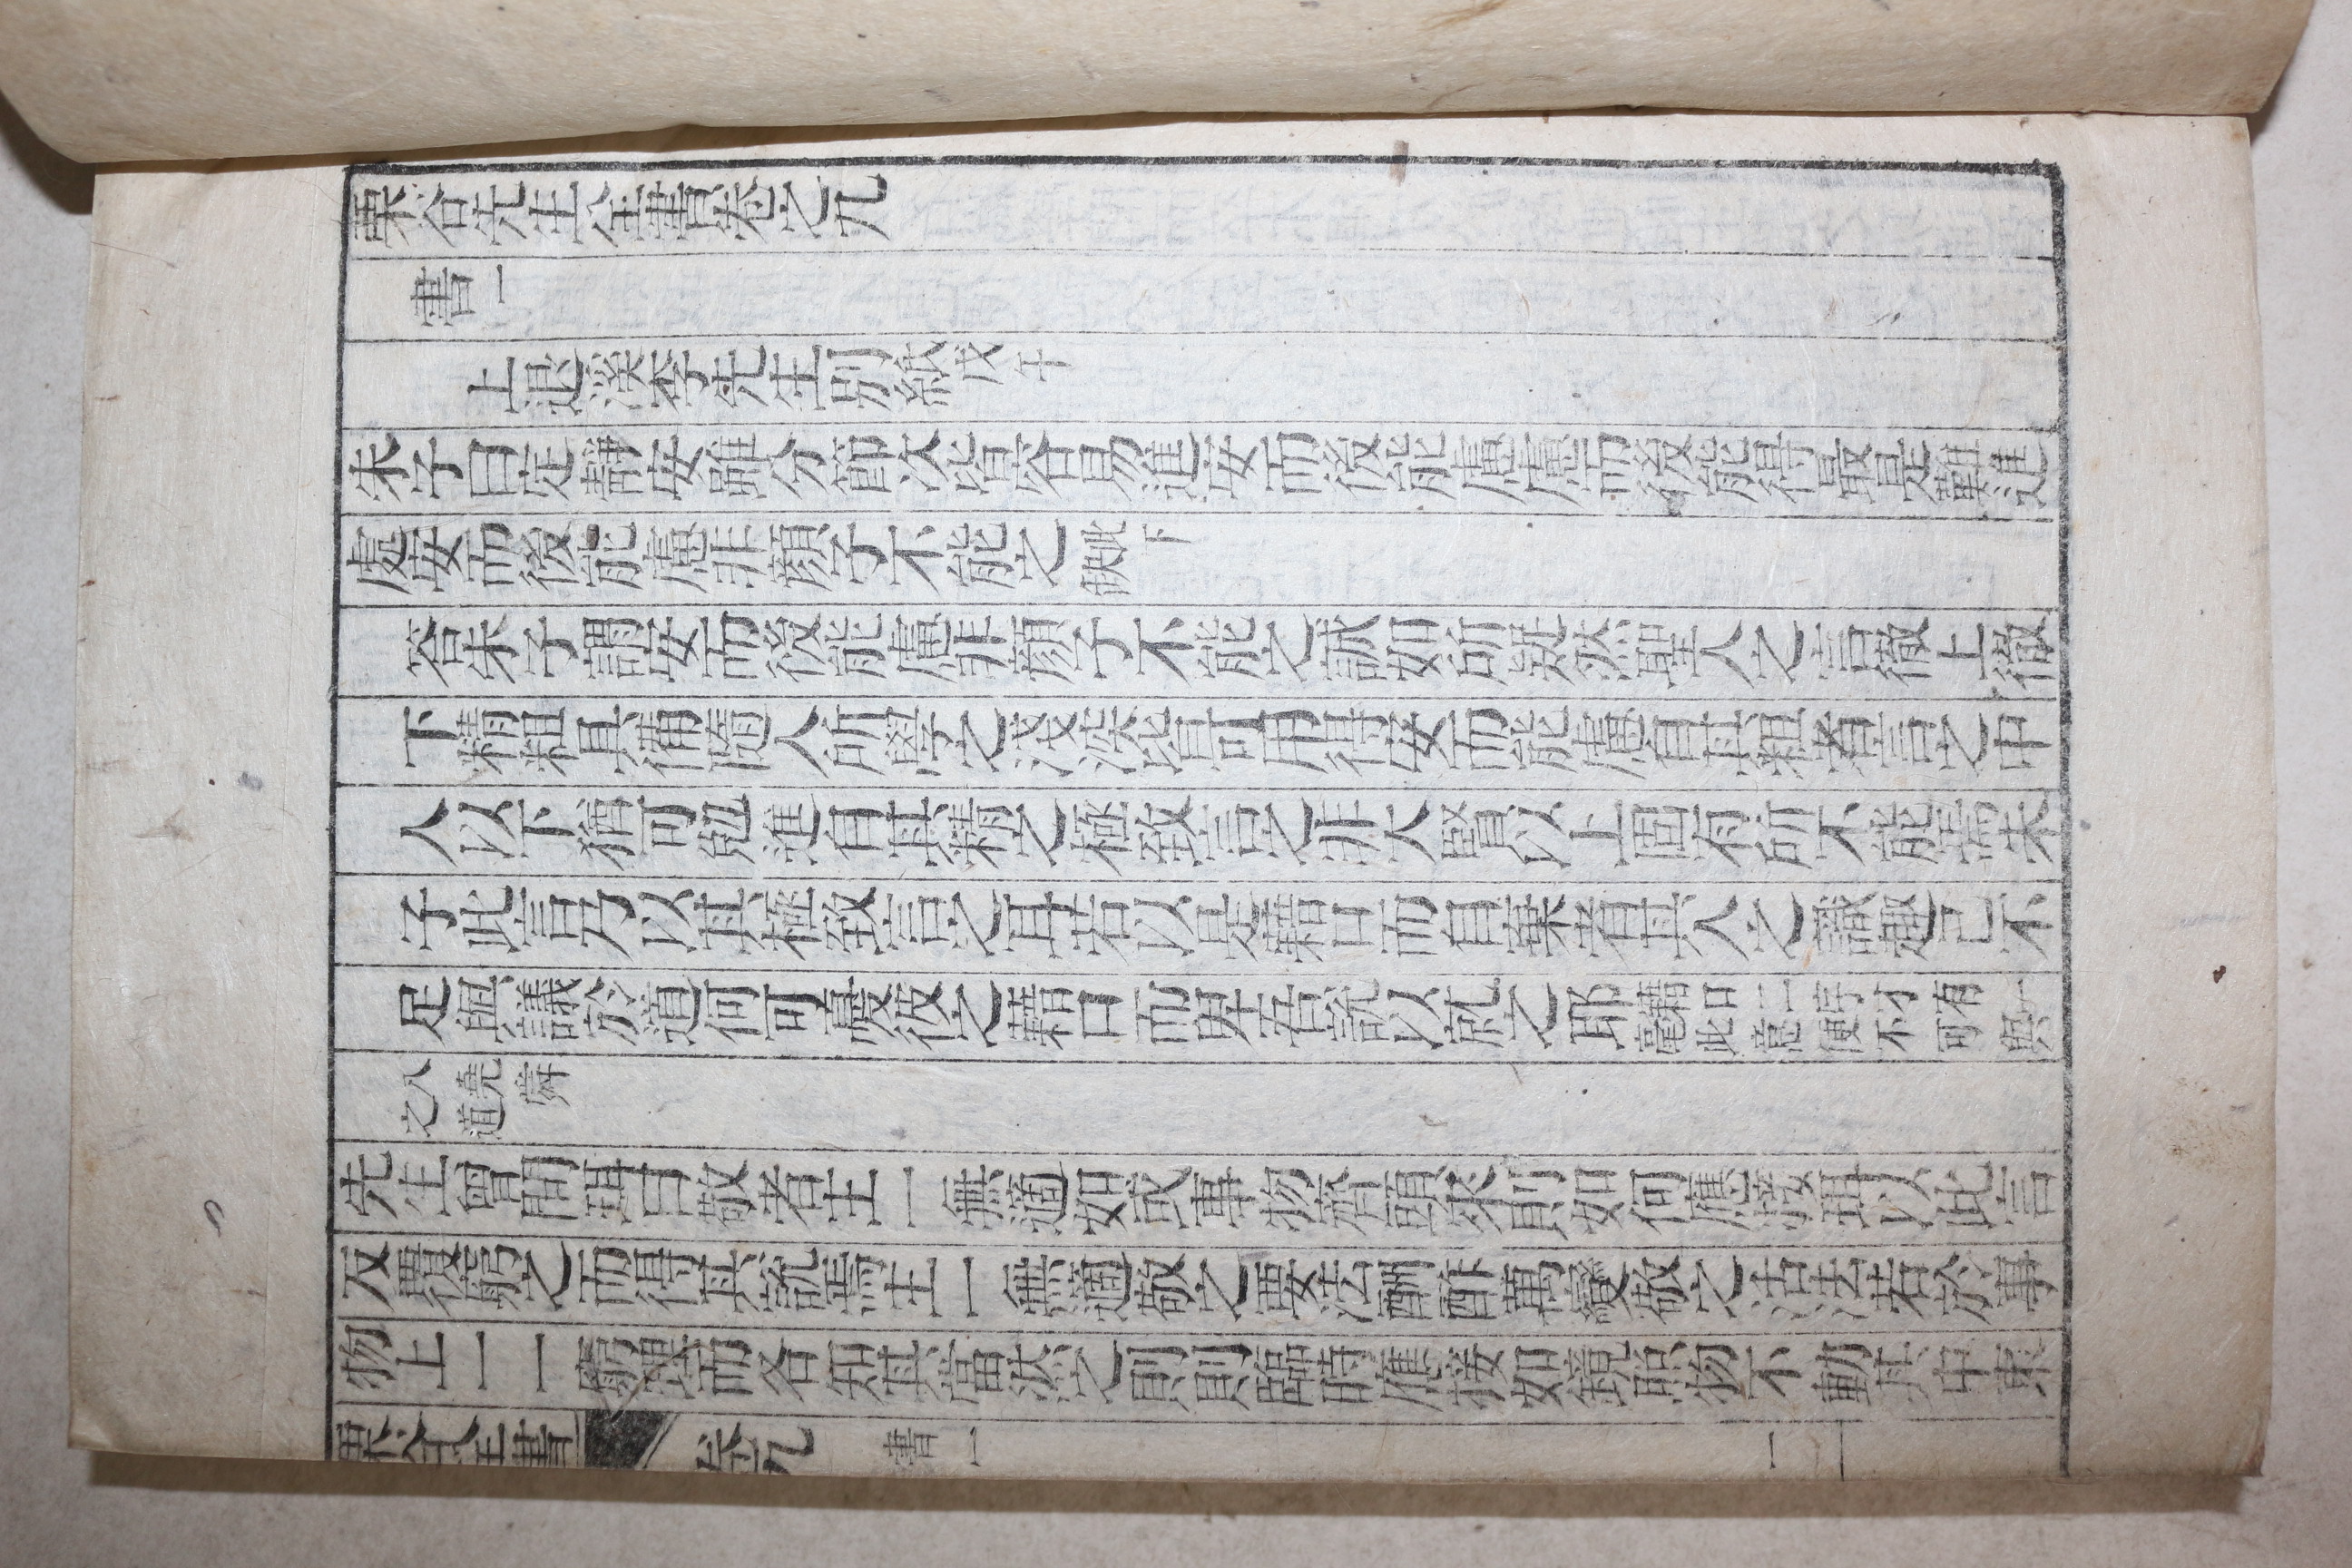 栗谷先生全書卷之九
書一
上退溪李先生別紙戊午
朱子曰定靜安雖分節次皆容易進安而後能慮慮而後能得最是難進
處安而後能慮非顔子不能之缺此下
答朱子謂安而後能慮非顔子不能之誠如所疑然聖人之言徹上徹
下精粗具備隨人所學之淺深皆可用得安而能慮自其粗者言之中
人以下猶可勉進自其精之極致言之非大賢以上固有所不能焉朱
子此言乃以其極致言之耳若以是藉口而自棄者其人之識趣已不
足與議於道何可憂彼之藉口而卑吾說以就之耶藉口二字才有一毫此意便不可與
入堯舜之道
先生曾問珥曰敬者主一無適如或事物齊頭來則如何應接珥以此言
反覆窮之而得其說焉主一無適敬之要法酬酢萬變敬之活法若於事
物上一一窮理而各知其當然之則則臨時應接如鏡照物不動其中東
栗谷全書 卷九 書一 一